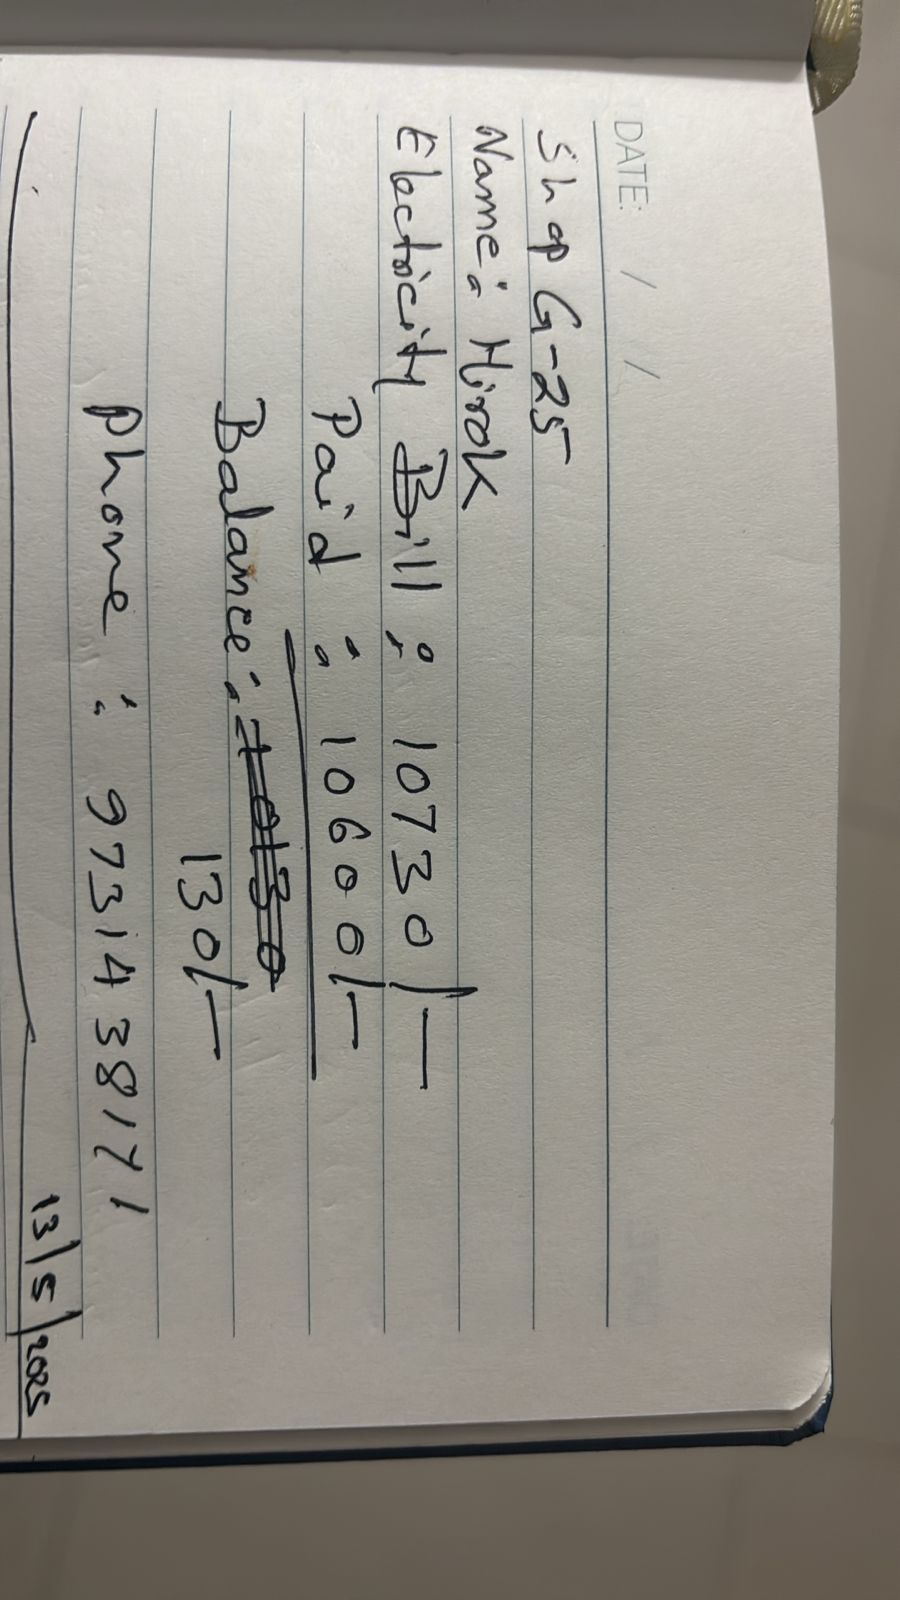 DATE: / /
Shop G-25
Name: Hirok
Electricity Bill : 10730/-
Paid : 10600/-
Balance:
130/-
Phone : 9731438171
13/5/2025